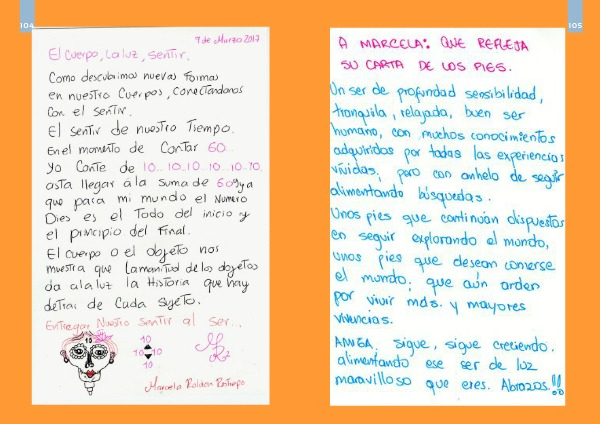 104
7 de Marzo 2017
El Cuerpo, la luz, sentir.
Como descubrimos nuevas formas
en nuestro Cuerpos, Conectandonos
Con el sentir.
El sentir de nuestro Tiempo.
En el momento de Contar 60...
Yo Conte de 10...10...10...10...10...10
asta llegar á la suma de 60 y a
que para mi mundo el Numero
Dies es el Todo del inicio y
el principio del Final.
El Cuerpo o el objeto nos
muestra que la manitud de los objetos
da a la luz la Historia que hay
detras de Cada Sujeto.
Entregar Nuestro Sentir al ser...
10
10
10 10
10
MR
Marcela Roldan Restrepo
105
A MARCELA: QUE REFLEJA
SU CARTA DE LOS PIES.
Un ser de profundad sensibilidad,
tranquila, relajada, buen ser
humano, con muchos conocimientos
adquiridos por todas las experiencias
vividas, pero con anhelo de seguir
alimentando búsquedas.
Unos pies que continúan dispuestos
en seguir explorando el mundo,
unos pies que desean comerse
el mundo; que aún arden
por vivir más y mayores
vivencias.
AMIGA. sigue, sigue creciendo.
alimentando ese ser de luz
maravilloso que eres. Abrazos.!!